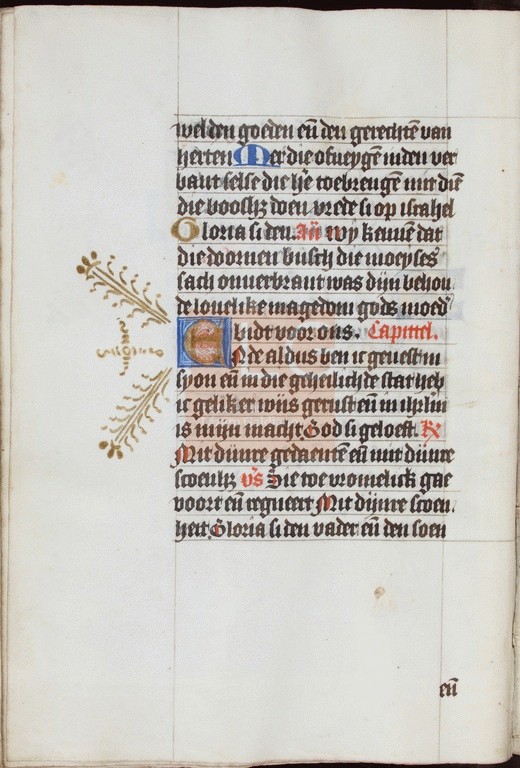 wel den goeden en̄ den gerechtē van
herten Mer die ofneygē inden ver
bant selse die h̄e toebrengē mit diē
die boosh; doen vrede si op israhel
Gloria si den. Añ wy kennē dat
die doornen busch die moeyses
sach onuerbrant was dijn behou
de louelike magedom gods moed'
bidt voor ons. Capittel.
Ende aldus ben ic geuest in
syon en̄ in die geheilichde stat heb
ic geliker wijs gerust en̄ in ih̄rlm
is mijn macht God si geloeft. R
Mit dijnre gedaentē en̄ mit dijnre
scoenh; v̄s Sie toe vromelick gae
voort en̄ regneert Mit dijnre scoen
heit Gloria si den vader en̄ den soen
en̄